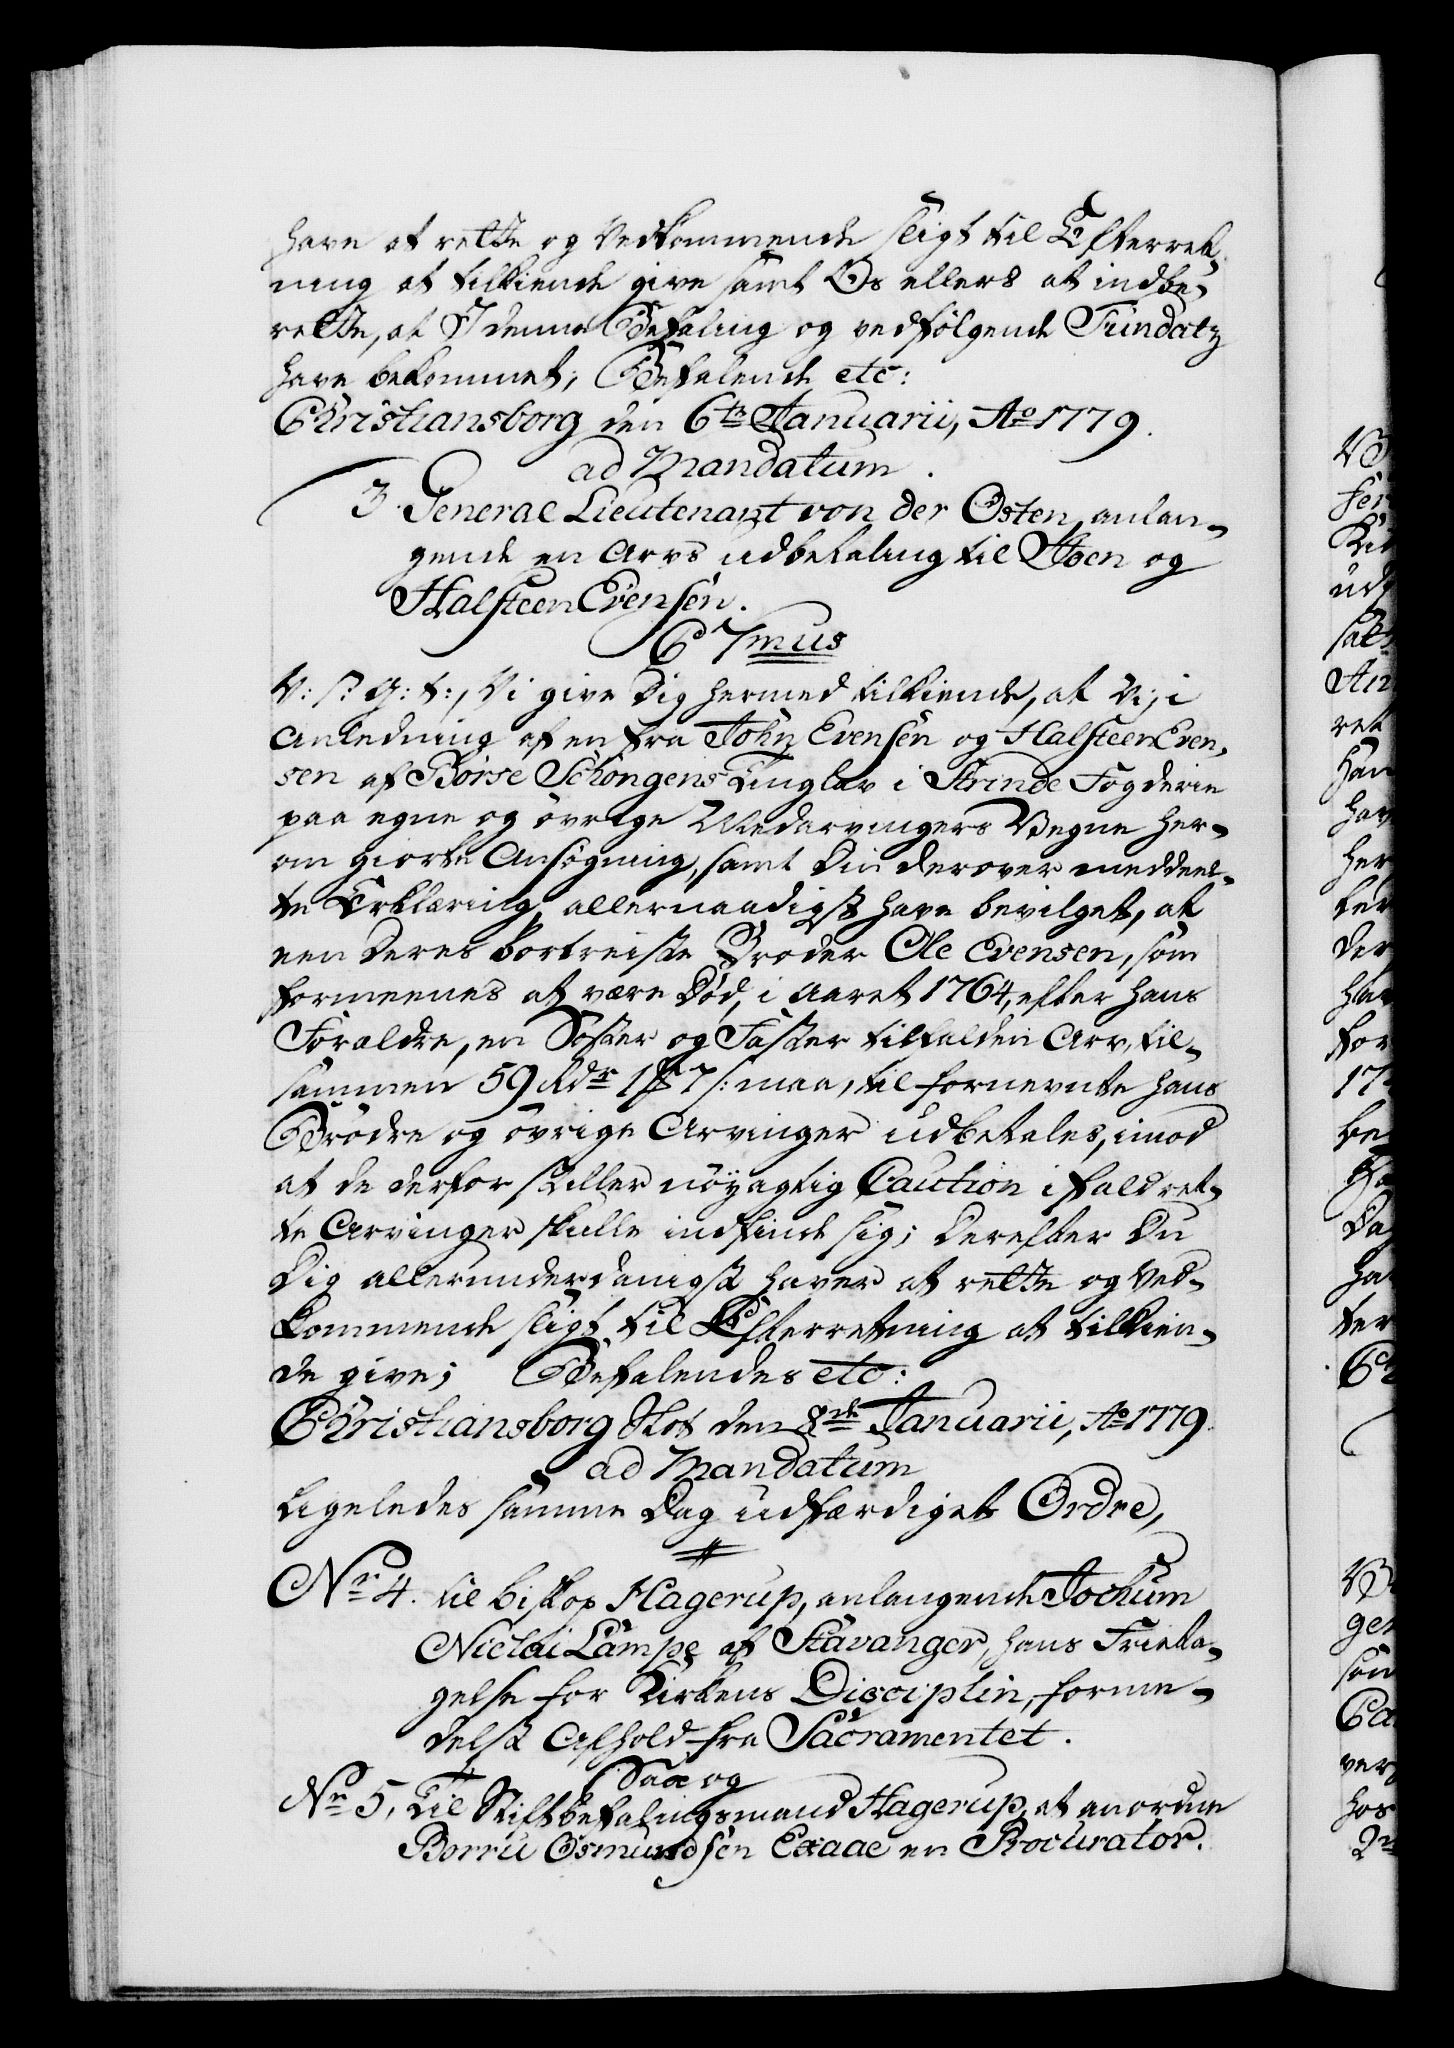 have at rette og Vedkommende sligt til Efterret-
ning at tilkiende give samt Os ellers at indbe-
rette, at I denne Befaling og vedfølgende Fundatz
have bekommet; Befalende etc:
Christiansborg den 6te Januarii, Ao 1779.
ad Mandatum.
3. General Lieutenant von der Osten, anlan-
gende en Arvs udbetaling til Joen og
Halsteen Evensen.
C 7mus
V: S: G: T:, Vi give Dig hermed tilkiende, at Vi, i
Anledning af en fra John Evensen og Halsteen Even-
sen af Börse Schongens Tinglav i Strinde Fogderie
paa egne og övrige Medarvingers Vegne her-
om giorte Ansögning, samt Din derover meddeel-
te Erklæring, allernaadigst have bevilget, at
een deres bortreiste Broder Ole Evensen, som
formeenes at være død, i Aaret 1764, efter hans
Forældre, en Söster og Faster tilfalden Arv, til-
sammen 59 Rdr 1 ß 7 s: maa, til fornevnte hans
Brödre og övrige Arvinger udbetales, imod
at de derfor stiller nöyagtig Caution ifald ret-
te Arvinger skulle indfinde sig; Derefter Du
Dig allerunderdanigst haver at rette og Ved-
kommende sligt til Efterretning at tilkien-
de give; Befalendes etc:
Christiansborg Slot den 8de Januarii, Ao 1779.
ad Mandatum
Ligeledes samme Dag udfærdiget Ordre,
Nr 4. til biskop Hagerup, anlangende Jochum
Niclai Lampe af Stavanger, hans Frieta-
gelse for Kirkens Disciplin, forme-
delst Afhold fra Sacramentet.
Saa og
Nr 5, Til Stiftbefalingsmand Hagerup, at anordne
Borru Osmundsen Exaae en Procurator.